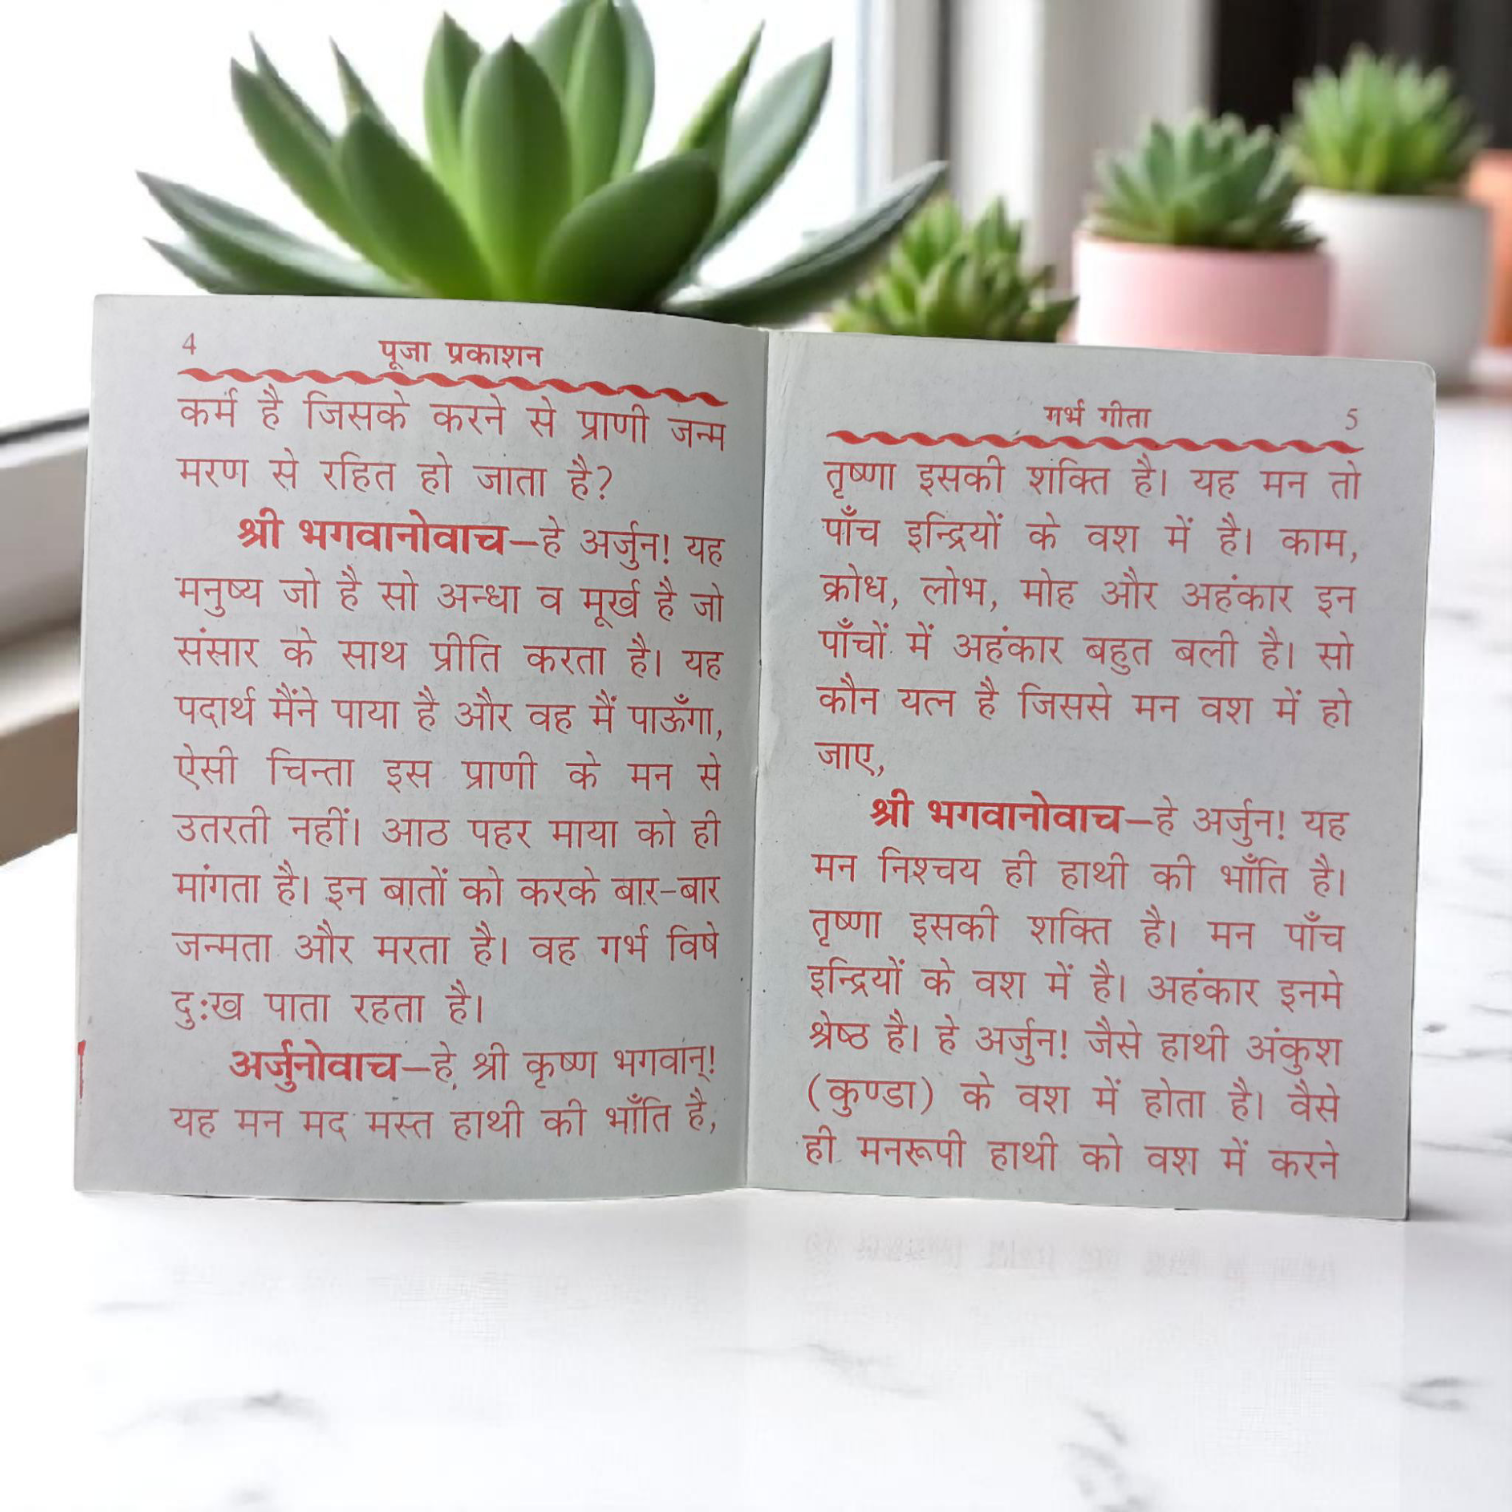 4 पूजा प्रकाशन
कर्म है जिसके करने से प्राणी जन्म
मरण से रहित हो जाता है?
श्री भगवानोवाच–हे अर्जुन! यह
मनुष्य जो है सो अन्धा व मूर्ख है जो
संसार के साथ प्रीति करता है। यह
पदार्थ मैंने पाया है और वह मैं पाऊँगा,
ऐसी चिन्ता इस प्राणी के मन से
उतरती नहीं। आठ पहर माया को ही
मांगता है। इन बातों को करके बार-बार
जन्मता और मरता है। वह गर्भ विषे
दुःख पाता रहता है।
अर्जुनोवाच–हे श्री कृष्ण भगवान्!
यह मन मद मस्त हाथी की भाँति है,
गर्भ गीता 5
तृष्णा इसकी शक्ति है। यह मन तो
पाँच इन्द्रियों के वश में है। काम,
क्रोध, लोभ, मोह और अहंकार इन
पाँचों में अहंकार बहुत बली है। सो
कौन यत्न है जिससे मन वश में हो
जाए,
श्री भगवानोवाच–हे अर्जुन! यह
मन निश्चय ही हाथी की भाँति है।
तृष्णा इसकी शक्ति है। मन पाँच
इन्द्रियों के वश में है। अहंकार इनमे
श्रेष्ठ है। हे अर्जुन! जैसे हाथी अंकुश
(कुण्डा) के वश में होता है। वैसे
ही मनरूपी हाथी को वश में करने